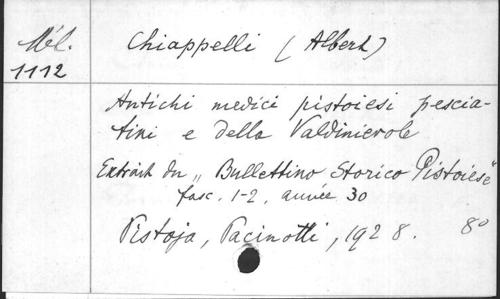 Mél.
1112
Chiappelli (Albert)
Antichi medici pistoiesi pescia-
tini e della Valdinievole
Extrait du „Bullettino Storico Pistoiese"
fasc. 1-2, année 30
Pistoja, Pacinotti, 1928. 8°